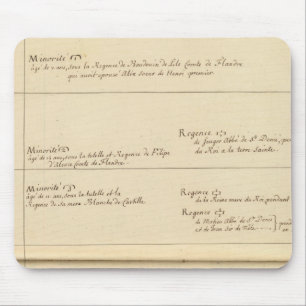 Minorité
âgé de 7 ans, sous la Regence de Baudouin de Lile Comte de Flandre
qui avoit epousé Alix soeur de Henri premier
Minorité
âgé de 14 ans, sous la tutelle et Regence de Filipe
d'Alsace Comte de Flandre
Regence
de Suger Abbé de St Denis,
du Roi a la terre sainte
Minorité
âgé de 12 ans, sous la tutelle et la
Regence de sa mere Blanche de Castille
Regence
de la Reine mere du Roi pendant
Regence
de Mathieu Abbé de St Denis
et de Sire de Nesle